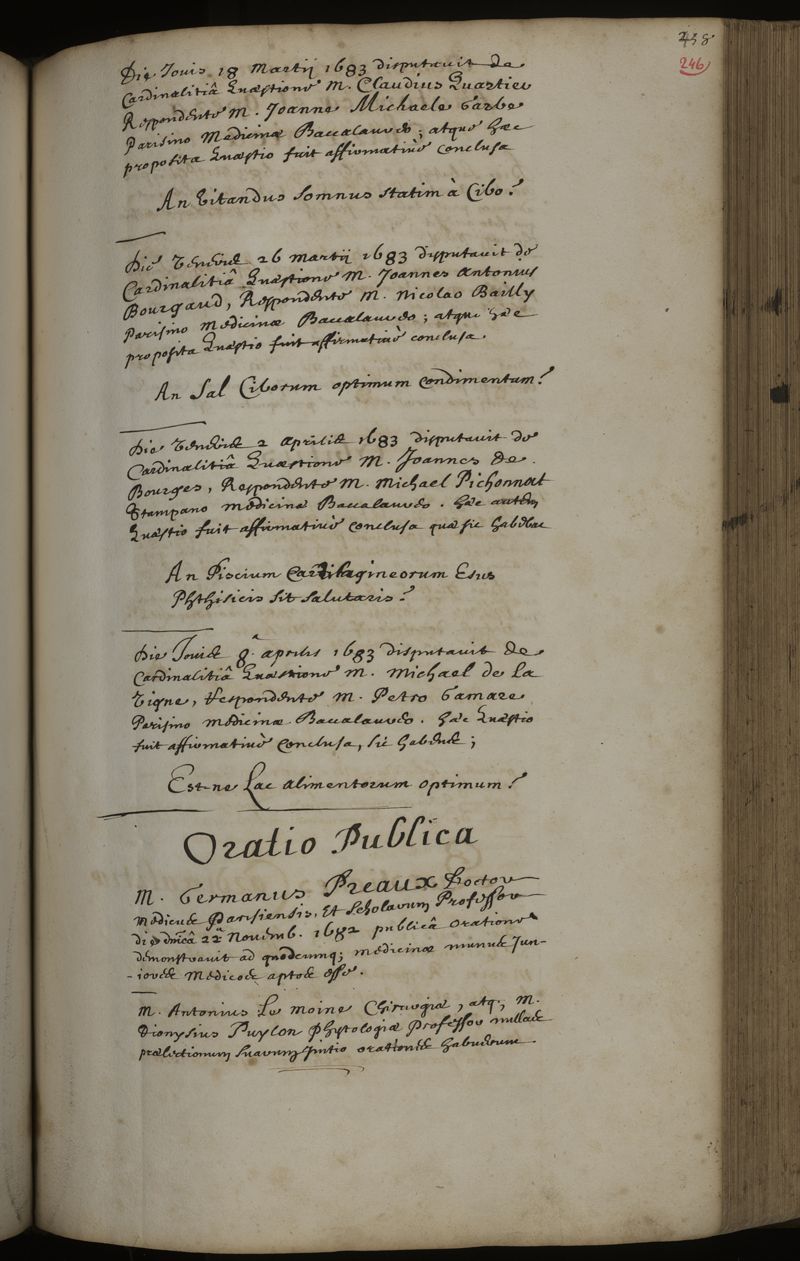 238
246
Die Jovis 18 Martij 1683 disputavit de
Cardinalitiâ Quæstione M. Claudius Quartier
Respondente M. Joanne Michaele Garbe
Parisino Medicinæ Baccalaureo; atque hæc
proposita Quæstio fuit affirmativè conclusa
An Vitandus somnus statim à Cibo?
Die Veneris 26 Martij 1683 disputavit de
Cardinalitiâ Quæstione M. Joannes Antonius
Bourgaud, Respondente M. Nicolao Bailly
Parisino Medicinæ Baccalaureo; atque hæc
proposita Quæstio fuit affirmativè conclusa.
An Sal Ciborum optimum condimentum?
Die Veneris 2 Aprilis 1683 disputavit de
Cardinalitiâ Quæstione M. Joannes de
Bourges, Respondente M. Michael Pichonnat
Stampano Medicinæ Baccalaureo. hæc autem
Quæstio fuit affirmativè conclusa quæ sic habebat
An Piscium Cartilagineorum Esus
Phthisicis sit salutaris?
Die Jovis 8ª aprilis 1683 disputavit de
Cardinalitiâ Quæstione M. Michael de La
Vigne, Respondente M. Petro Gamare
Parisino Medicinæ Baccalaureo. hæc Quæstio
fuit affirmativè conclusa, sic habens;
Est-ne Lac alimentorum optimum?
Oratio Publica
M. Germanus Preaux Doctor
Medicus Parisiensis, Et Scholarum Professor
die dnicâ 22â Novemb. 1682 publicâ oratione
demonstravit ad quodcumq; medicinæ munus Jun-
-iores Medicos aptos esse.
M. Antonius Le Moine Chirurgiæ, atq; M.
Dionysius Puylon Physiologiæ Professor nullas
prælectionum suarum Initio orationes habuerunt.